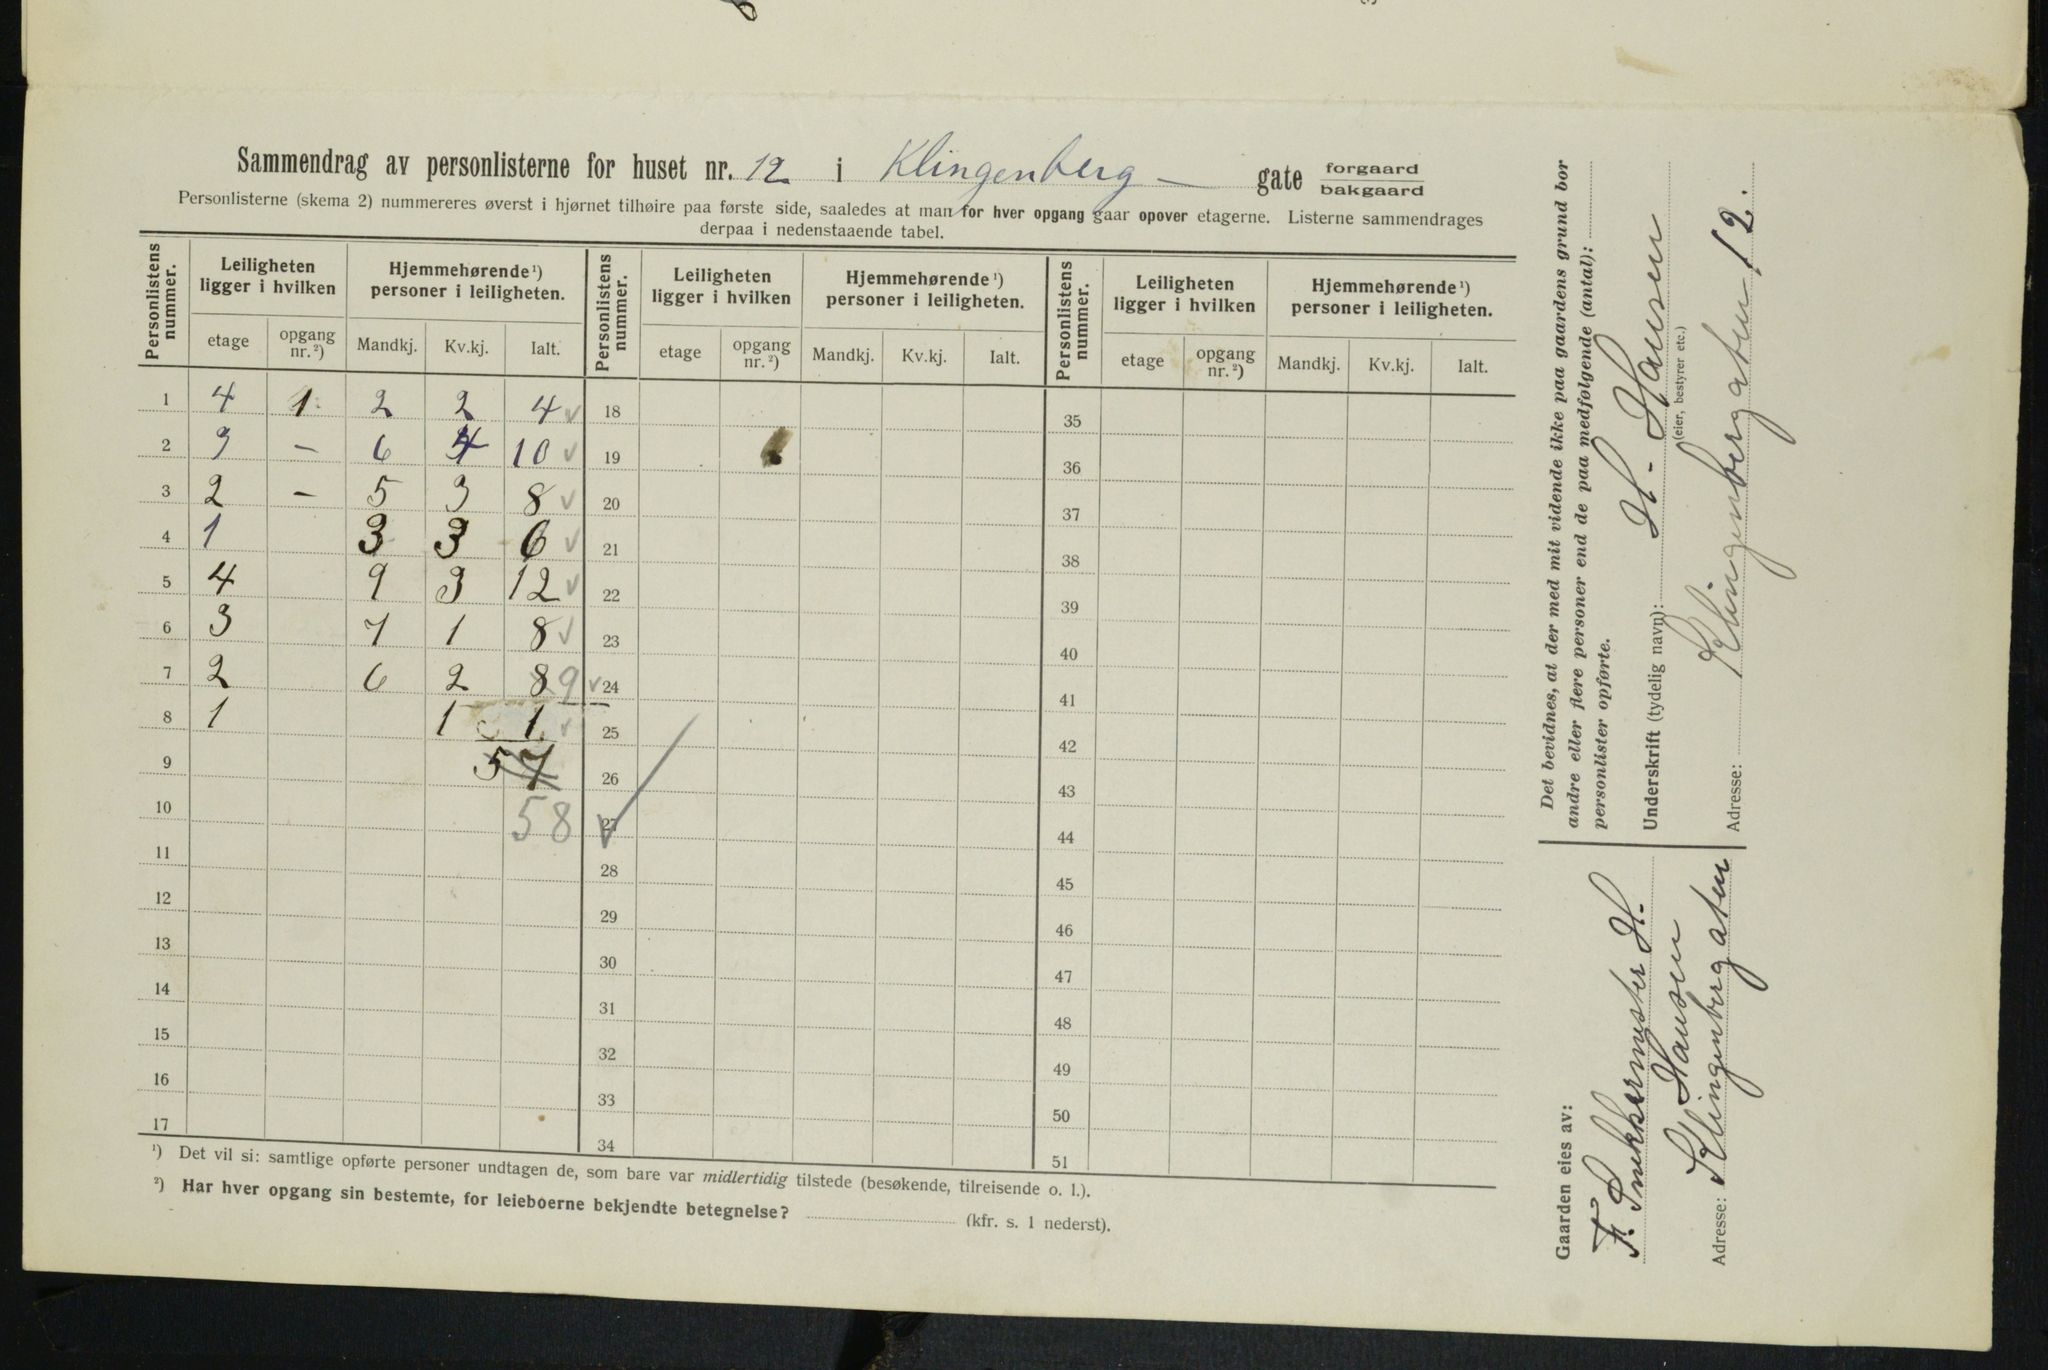 Sammendrag av personlisterne for huset nr. 12 i Klingenberg — gate forgaard bakgaard
Personlisterne (skema 2) nummereres øverst i hjørnet tilhøire paa første side, saaledes at man for hver opgang gaar opover etagerne. Listerne sammendrages
derpaa i nedenstaaende tabel.
Personlistens nummer. Leiligheten ligger i hvilken Hjemmehørende ¹) personer i leiligheten. Personlistens nummer. Leiligheten ligger i hvilken Hjemmehørende ¹) personer i leiligheten. Personlistens nummer. Leiligheten ligger i hvilken Hjemmehørende ¹) personer i leiligheten.
etage opgang nr. ²) Mandkj. Kv.kj. Ialt. etage opgang nr. ²) Mandkj. Kv.kj. Ialt. etage opgang nr. ²) Mandkj. Kv.kj. Ialt.
1 4 1 2 2 4 ✓ 18 35
2 3 – 6 4 10 ✓ 19 36
3 2 – 5 3 8 ✓ 20 37
4 1 3 3 6 ✓ 21 38
5 4 9 3 12 ✓ 22 39
6 3 7 1 8 ✓ 23 40
7 2 6 2 8 9 ✓ 24 41
8 1 1 1 ✓ 25 42
9 57 26 43
10 58 ✓ 27 44
11 28 45
12 29 46
13 30 47
14 31 48
15 32 49
16 33 50
17 34 51
¹) Det vil si: samtlige opførte personer undtagen de, som bare var midlertidig tilstede (besøkende, tilreisende o. l.).
²) Har hver opgang sin bestemte, for leieboerne bekjendte betegnelse? (kfr. s. 1 nederst).
Det bevidnes, at der med mit vidende ikke paa gaardens grund bor
andre eller flere personer end de paa medfølgende (antal):
personlister opførte.
Underskrift (tydelig navn): H. Hansen
(eier, bestyrer etc.)
Adresse: Klingenberggaten 12.
Gaarden eies av:
H.
Hansen
Adresse: Klingenberggaten